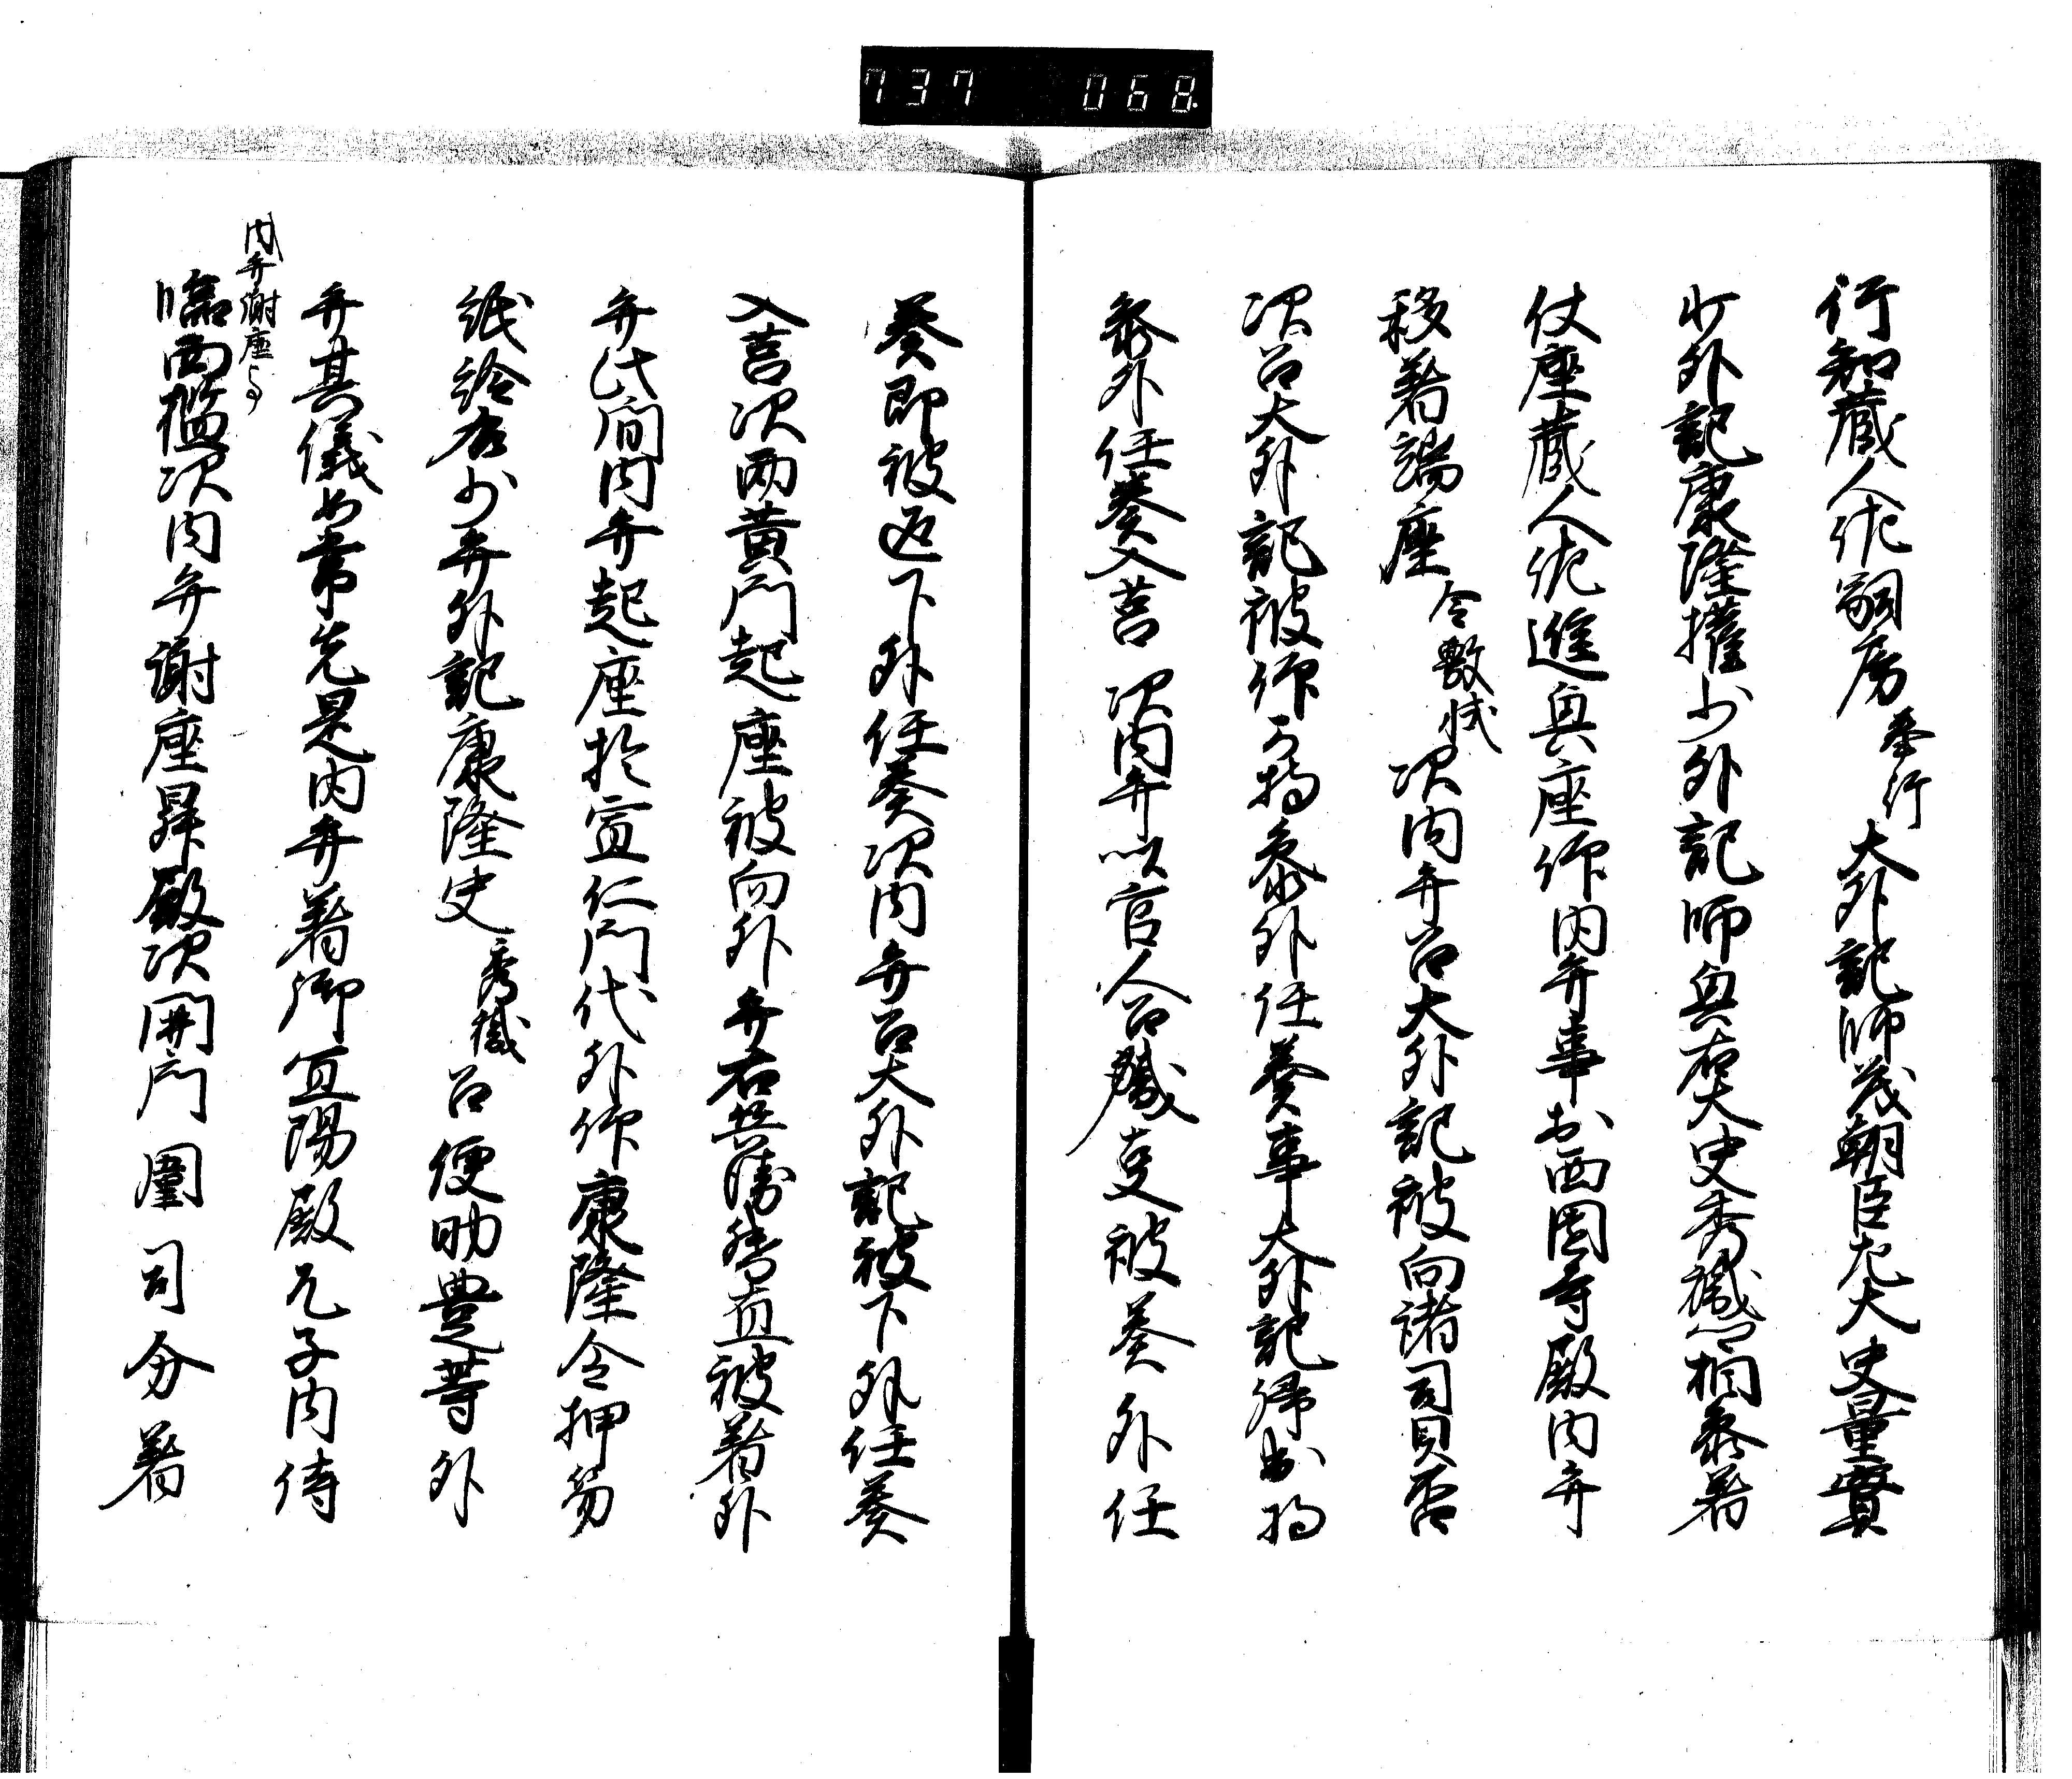 737 068
行知蔵人佐嗣房奉行大外記師茂朝臣左大史量實
少外記康隆権少外記師興右大史秀職等相参著
仗座蔵人佐進奥座仰内弁事於西園寺殿内弁
移著端座令敷軾次内弁召大外記被向諸司具否
次召大外記被仰可持参外任奏事大外記帰出持
参外任奏入莒次内弁以官人召職事被奏外任
奏即被返下外任奏次内弁召大外記被下外任奏
入莒次両黄門起座被向外弁右兵衛督直被著外
弁此間内弁起座於宣仁門代外仰康隆令押笏
紙給右少弁外記康隆史秀職召使助豊等外
弁其儀如常先是内弁著御宜陽殿兀子内侍
内弁謝座
臨西檻次内弁謝座昇殿次開門闈司分著